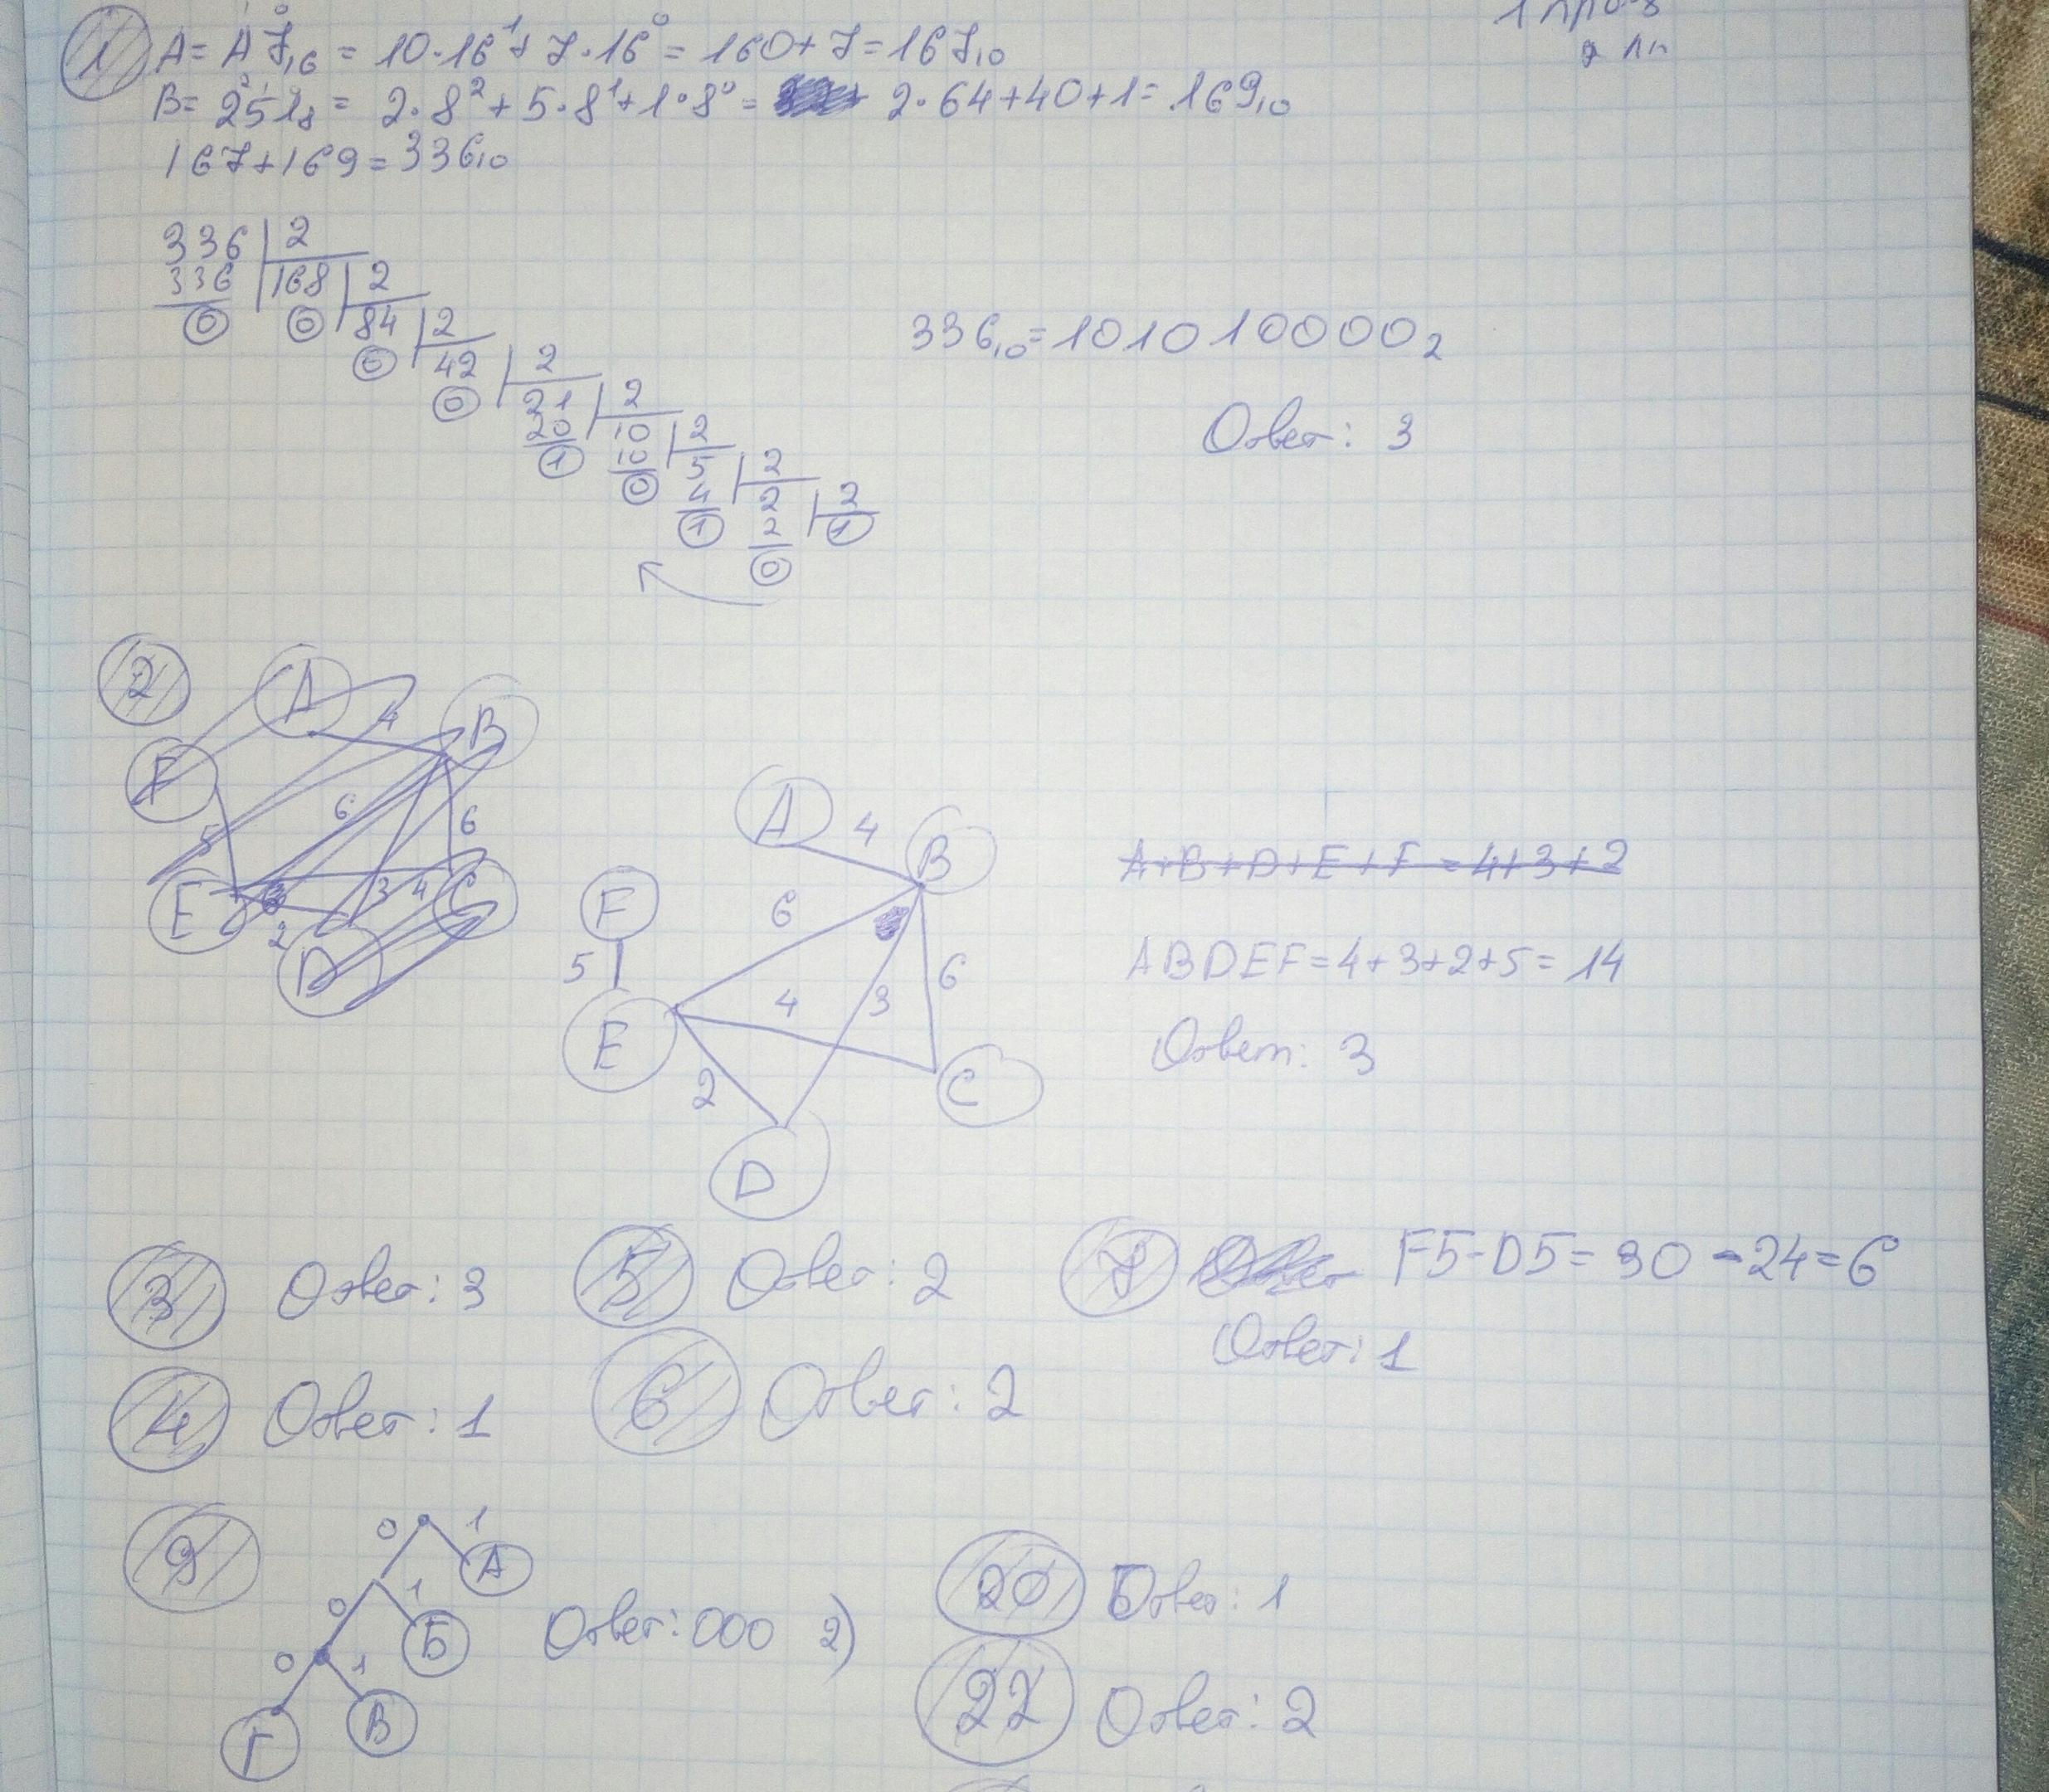 1 A = A7₁₆ = 10·16¹ + 7·16⁰ = 160 + 7 = 167₁₀
B = 251₈ = 2·8² + 5·8¹ + 1·8⁰ = 2·64 + 40 + 1 = 169₁₀
167 + 169 = 336₁₀
336 2
336 168 2
0 0 84 2
0 42 2
0 21 2
20 10 2
1 10 5 2
0 4 2 2
1 2 1
0
336₁₀ = 101010000₂
Ответ: 3
2
A 4 B
F
5 6 6
E 3 4 C
2
D
A 4 B
F 6
5 6
E 4 3
2 C
D
A+B+D+E+F = 4+3+2
ABDEF = 4+3+2+5 = 14
Ответ: 3
3 Ответ: 3
5 Ответ: 2
7 F5-D5 = 30 - 24 = 6
Ответ: 1
4 Ответ: 1
6 Ответ: 2
9
0 1
А
0 1
Б
0 1
Г В
Ответ: 000 2)
20 Ответ: 1
22 Ответ: 2